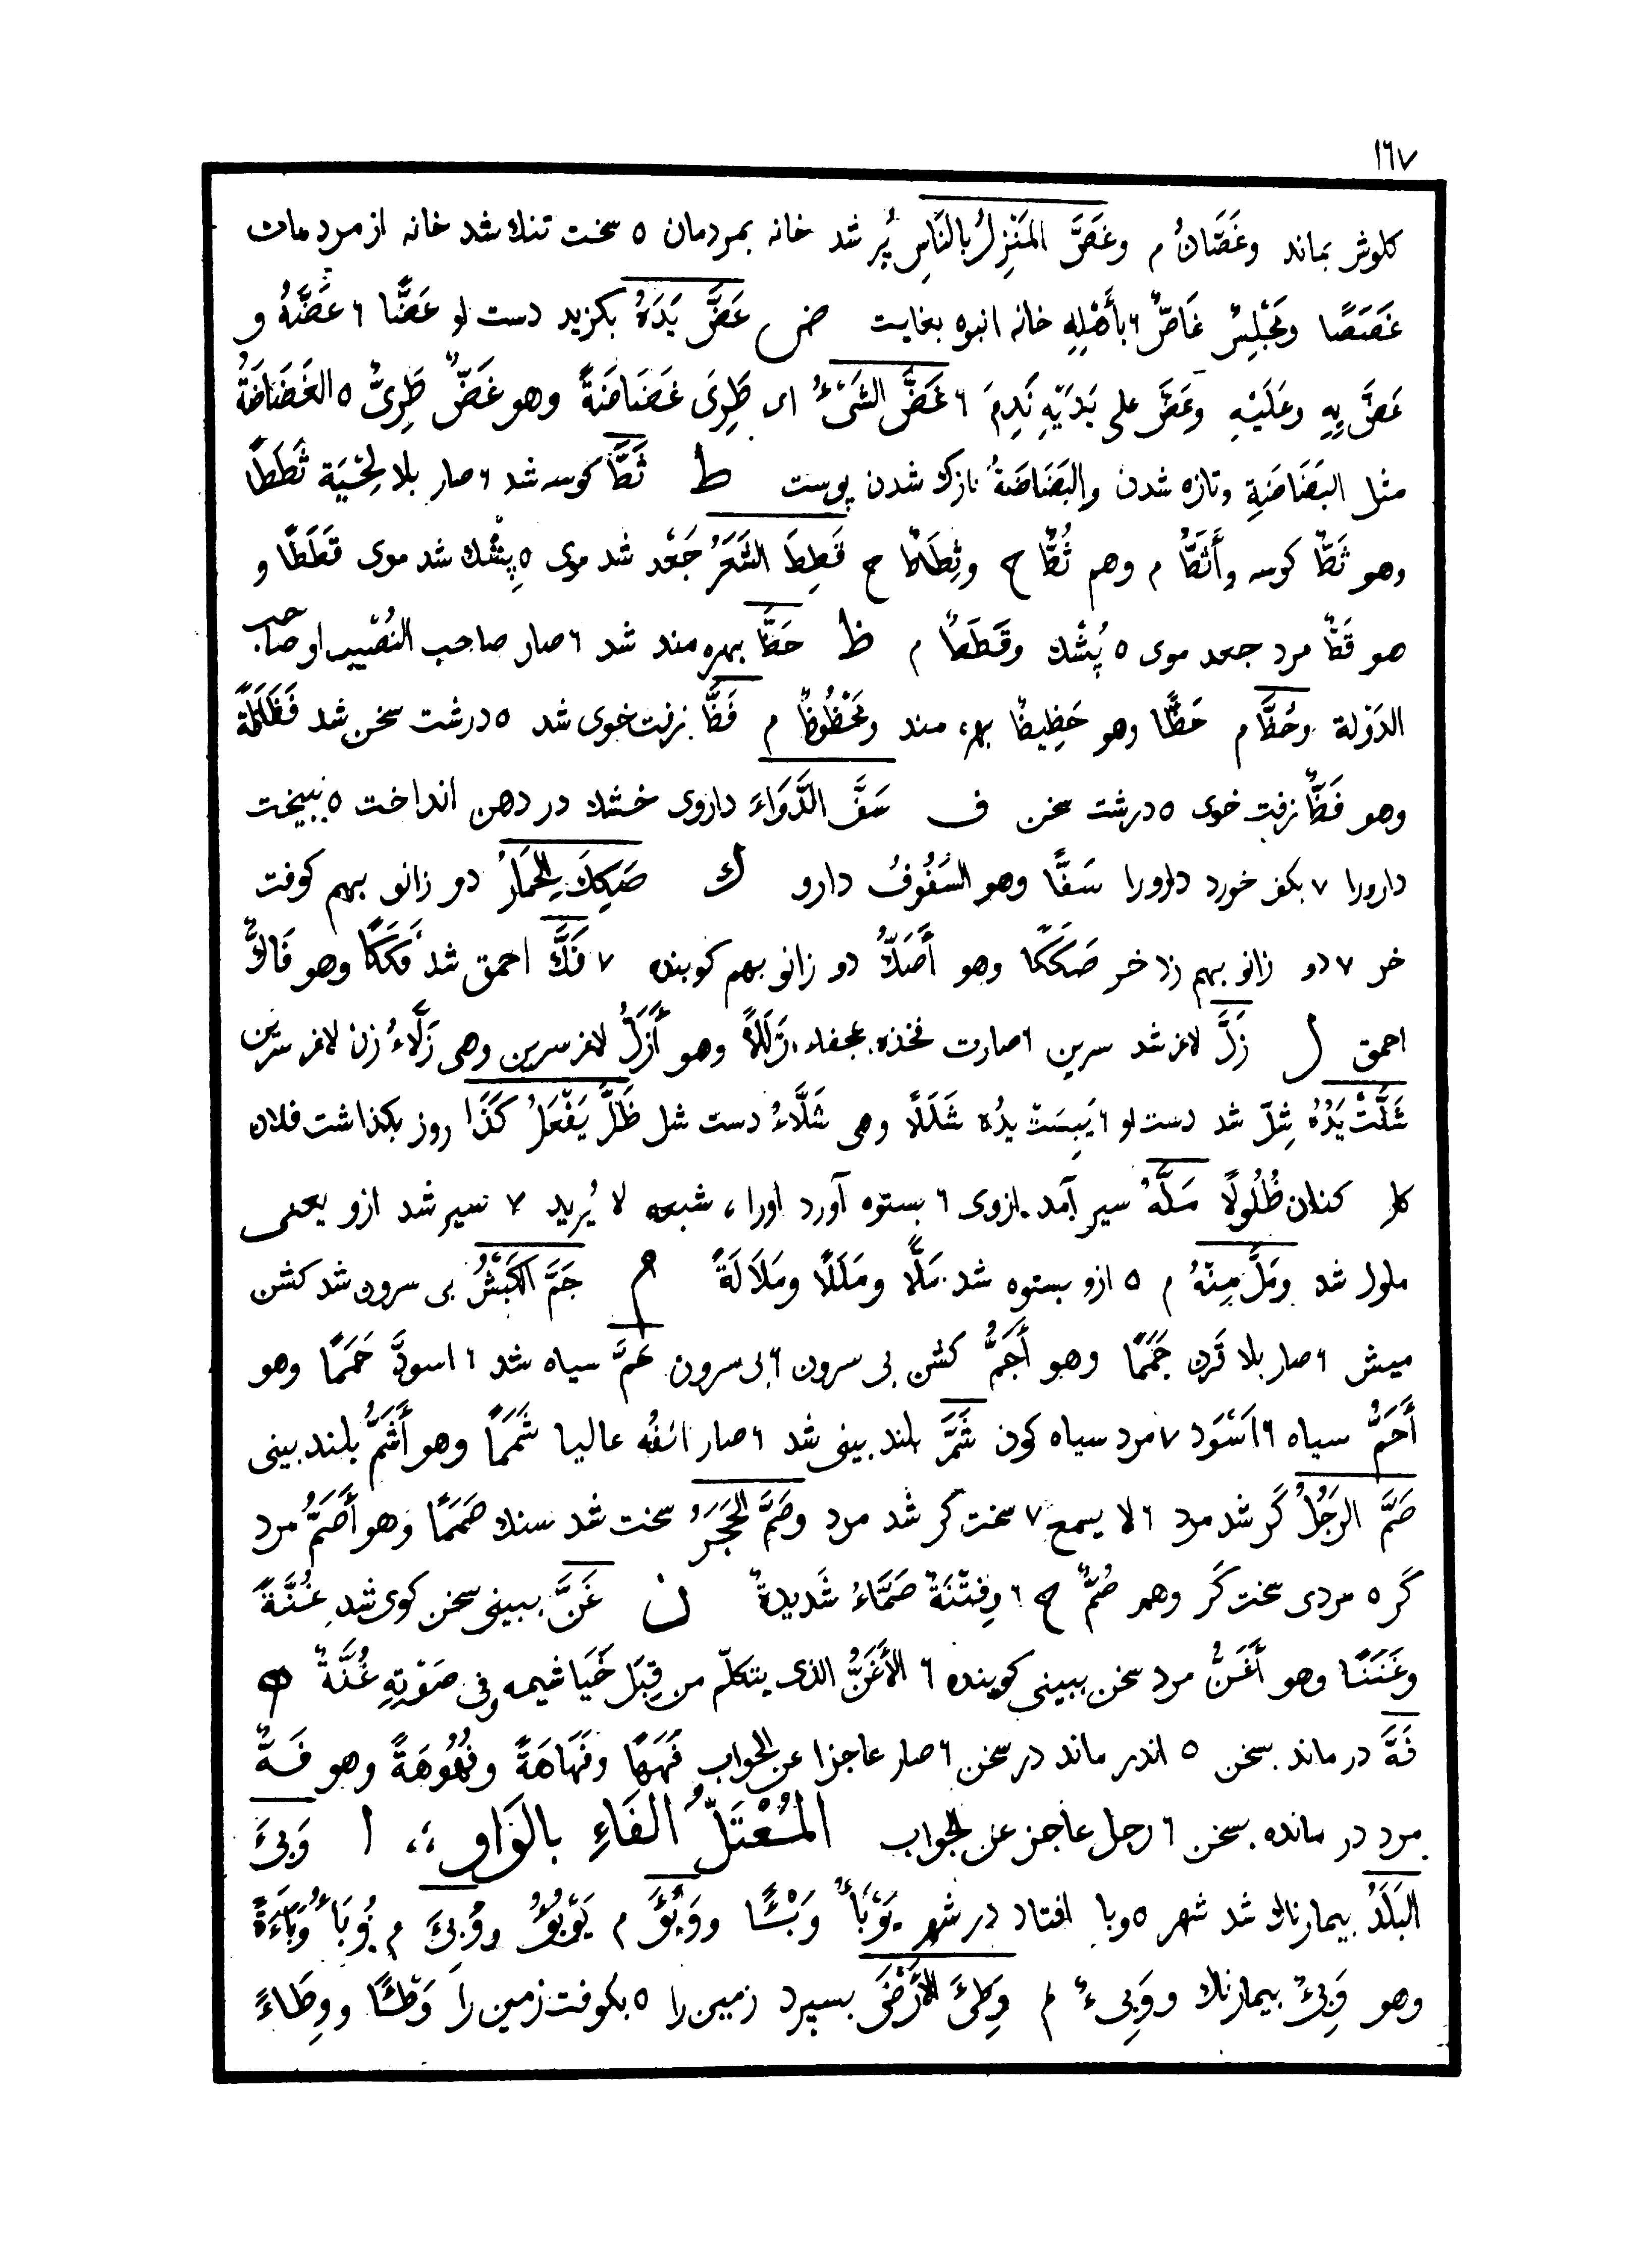 ١٦٧
كلوش بماند وغَصَّانُ م وغَصَّ المَنْزِلُ بالنَاسِ پُر شد خانه بمردمان ٥ سخت تنك شد خانه از مردمان
غَصَصًا ومَجْلِسٌ غَاصٌّ ٦ بأَهْلِهِ خانه انبوه بغايت ض عَضَّ يَدَهُ بكزيد دست او عَضًّا ٦ عَضَّهُ و
عَضَّ بِهِ وعَلَيْهِ وعَضَّ على يَدَيْهِ نَدِمَ ٦ غَضَّ الشَىْءُ اى طَرِىَ غَضَاضَةً وهو غَضٌّ طَرِىٌّ ٥ الغَضَاضَةُ
مثل البَضَاضَةِ وتازه شدن والبَضَاضَةُ نازك شدن پوست ط ثَطَّ كوسه شد ٦ صار بلا لِحْيَة ثَطَطًا
وهو ثَطٌّ كوسه وأَثَطُّ م وهم ثُطٌّ ح وثِطَاطٌ ح قَطِطَ الشَعَرُ جَعْد شد موى ٥ پِشْك شد موى قَطَطًا و
هو قَطٌّ مرد جعد موى ٥ پُشْك وقَطَطٌ م ظ حَظَّ بهره مند شد ٦ صار صاحب النُصْيب او صاحب
الدَوْلة وحُظَّ م حَظًّا وهو حَظِيظٌ بهره مند ومَحْظُوظٌ م فَظَّ زفت خوى شد ٥ درشت سخن شد فَظَاظَةً
وهو فَظٌّ زفت خوى ٥ درشت سخن ف سَفَّ الدَّوَاءَ داروى خشك در دهن انداخت ٥ ببيخت
دارورا ٧ بكف خورد دارورا سَفًّا وهو السَفُوفُ دارو ك صَكِكَ الحِمَارُ دو زانو بهم كوفت
خر ٧ دو زانو بهم زد خر صَكَكًا وهو أَصَكُّ دو زانو بهم كوبنده ٧ فَكَّ احمق شد فَكَكًا وهو فَاكٌّ
احمق ل زَلَّ لاغر شد سرين ٦ صارت فخذه عجفاء زَلَلًا وهو أَزَلُّ لاغر سرين وهى زَلَّاءُ زن لاغر سرين
شَلَّتْ يَدُهُ شِلّ شد دست او ٦ يَبِسَتْ يدُه شَلَلًا وهى شَلَّاءُ دست شل ظَلَّ يَفْعَلُ كَذَا روز بكذاشت فلان
كار كنان ظُلُولًا مَلَّهُ سير آمد ازوى ٦ بستوه آورد اورا ، شبعه لا يُريد ٧ سير شد ازو يعنى
ملول شد ومَلَّ مِنْهُ م ٥ ازو بستوه شد مَلًّا ومَلَلًا ومَلَالَةً م جَمَّ الكَبْشُ بى سرون شد كشن
ميش ٦ صار بلا قَرن جَمَمًا وهو أَجَمُّ كشن بى سرون ٦ بى سرون حَمَّ سياه شد ٦ اسودَّ حَمَمًا وهو
أَحَمُّ سياه ٦ اَسْوَد ٧ مرد سياه كون شَمَّ بلند بينى شد ٦ صار انفُه عاليا شَمَمًا وهو أَشَمُّ بلند بينى
صَمَّ الرَجُلُ كَر شد مرد ٦ لا يسمع ٧ سخت كر شد مرد وصَمَّ الحَجَرُ سخت شد سنك صَمَمًا وهو أَصَمُّ مرد
كَر ٥ مردى سخت كَر وهم صُمٌّ ح ٦ وفِتْنَةٌ صَمَّاءُ شَديدةٌ ن غَنَّ ببينى سخن كوى شد غُنَّةً
وغَنَنًا وهو أَغَنُّ مرد سخن ببينى كوينده ٦ الأَغَنُّ الذى يتكلّم من قِبَل خَيَاشيمه وفى صَوْتِهِ غُنَّةٌ ه
فَهَّ در ماند بسخن ٥ اندر ماند در سخن ٦ صار عاجزا عن الجواب فَهَهًا وفَهَاهَةً وفُهُوهَةً وهو فَهٌّ
مرد در مانده بسخن ٦ رجل عاجز عن الجواب المُعْتَلُّ الفَاءِ بالوَاو ،؛، ا وَبِئَ
البَلَدُ بيمارناك شد شهر ٥ وبا افتاد در شهر يَوْبَأُ وَبْئًا ووَبُؤَ م يَوْبُؤُ ووُبِئَ م يُوبَأُ وَبَاءَةً
وهو وَبِئٌ بيمارناك ووَبِىءٌ م وَطِئَ الأَرْضَ بسپرد زمين را ٥ بكوفت زمين را وَطْئًا ووِطَاءً